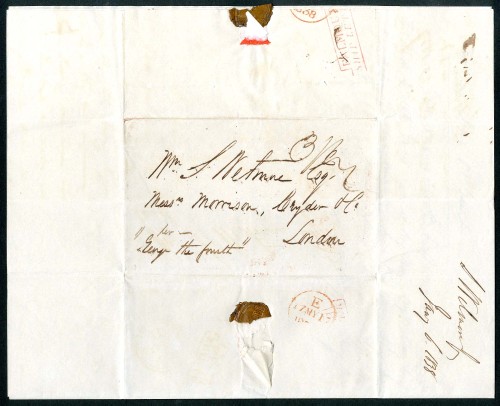 Wm. S. Wetmore Esq.
Messrs Morrison, Cryder & Co.
London
"per
George the fourth"
S Wetmore
May 6. 1838
E